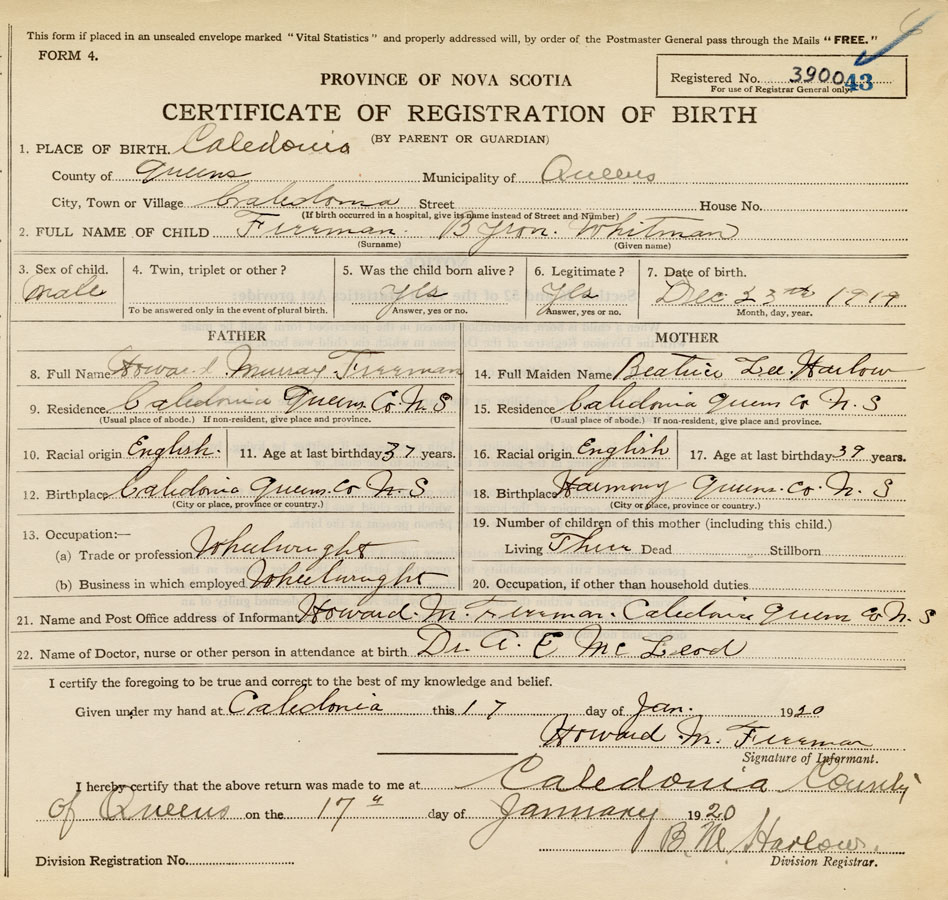 This form if placed in an unsealed envelope marked "Vital Statistics" and properly addressed will, by order of the Postmaster General pass through the Mails "FREE."
FORM 4.
PROVINCE OF NOVA SCOTIA
Registered No. 3900 43
For use of Registrar General only.
CERTIFICATE OF REGISTRATION OF BIRTH
(BY PARENT OR GUARDIAN)
1. PLACE OF BIRTH. Caledonia
County of Queens Municipality of Queens
City, Town or Village Caledonia Street House No.
(If birth occurred in a hospital, give its name instead of Street and Number)
2. FULL NAME OF CHILD Freeman. Byron. Whitman
(Surname) (Given name)
3. Sex of child. 4. Twin, triplet or other? 5. Was the child born alive? 6. Legitimate? 7. Date of birth.
male yes yes Dec 23rd 1919
To be answered only in the event of plural birth. Answer, yes or no. Answer, yes or no. Month, day, year.
FATHER MOTHER
8. Full Name Howard Murray Freeman 14. Full Maiden Name Beatrice Lee Harlow
9. Residence Caledonia Queens Co N S 15. Residence Caledonia Queens Co N. S
(Usual place of abode.) If non-resident, give place and province. (Usual place of abode.) If non-resident, give place and province.
10. Racial origin English. 11. Age at last birthday 37 years. 16. Racial origin English 17. Age at last birthday 39 years.
12. Birthplace Caledonia Queens. Co N. S 18. Birthplace Harmony Queens. Co. N. S
(City or place, province or country.) (City or place, province or country.)
13. Occupation:— 19. Number of children of this mother (including this child.)
(a) Trade or profession Wheelwright Living Three Dead Stillborn
(b) Business in which employed Wheelwright 20. Occupation, if other than household duties
21. Name and Post Office address of Informant Howard. M. Freeman. Caledonia Queens Co N. S
22. Name of Doctor, nurse or other person in attendance at birth Dr. A. C Mc Leod
I certify the foregoing to be true and correct to the best of my knowledge and belief.
Given under my hand at Caledonia this 17 day of Jan. 1920
Howard M. Freeman
Signature of Informant.
I hereby certify that the above return was made to me at Caledonia County
of Queens on the 17th day of January 1920
Harlow.
Division Registration No. Division Registrar.